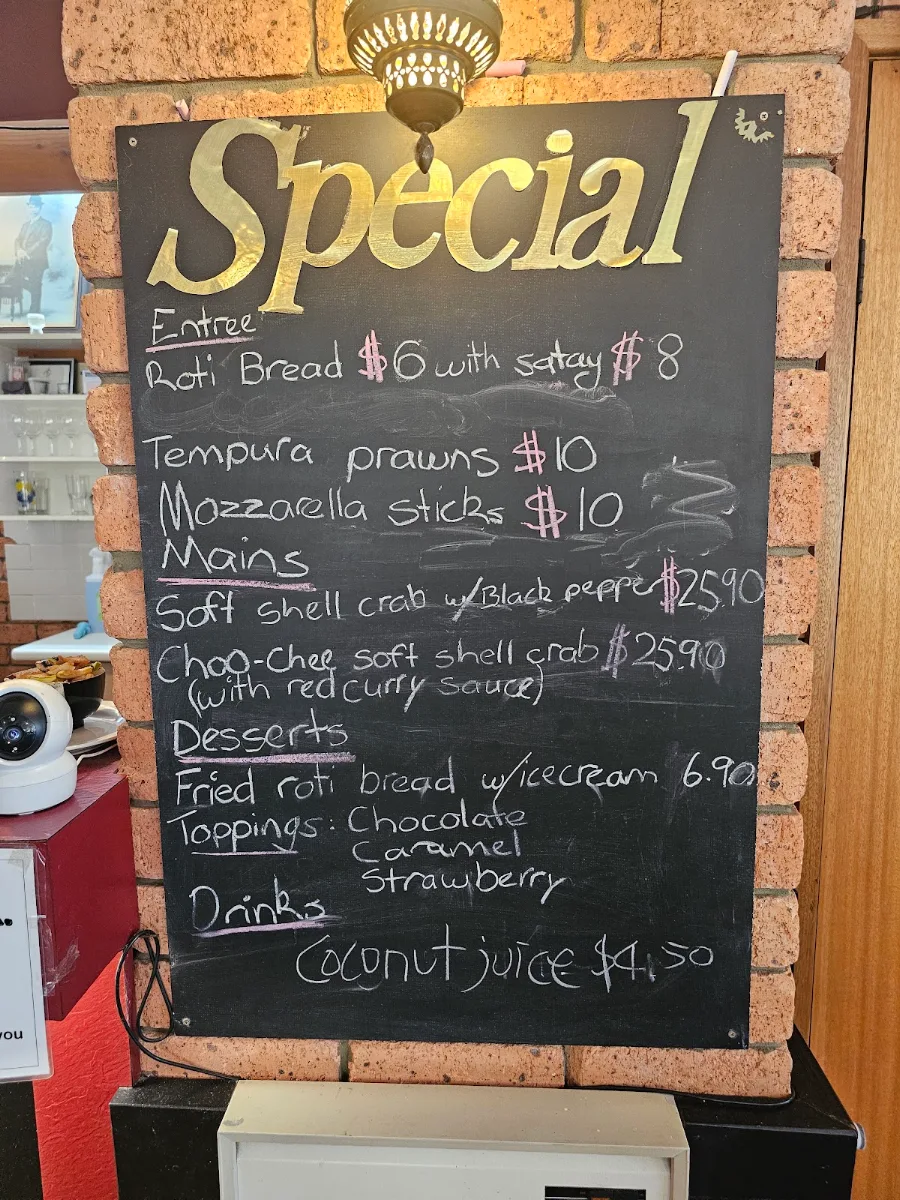 Special
Entree
Roti Bread $6 with satay $8
Tempura prawns $10
Mozzarella sticks $10
Mains
Soft shell crab w/Black pepper $25.90
Choo-Chee soft shell crab $25.90
(with red curry sauce)
Desserts
Fried roti bread w/icecream 6.90
Toppings: Chocolate
Caramel
Strawberry
Drinks
Coconut juice $4.50
you